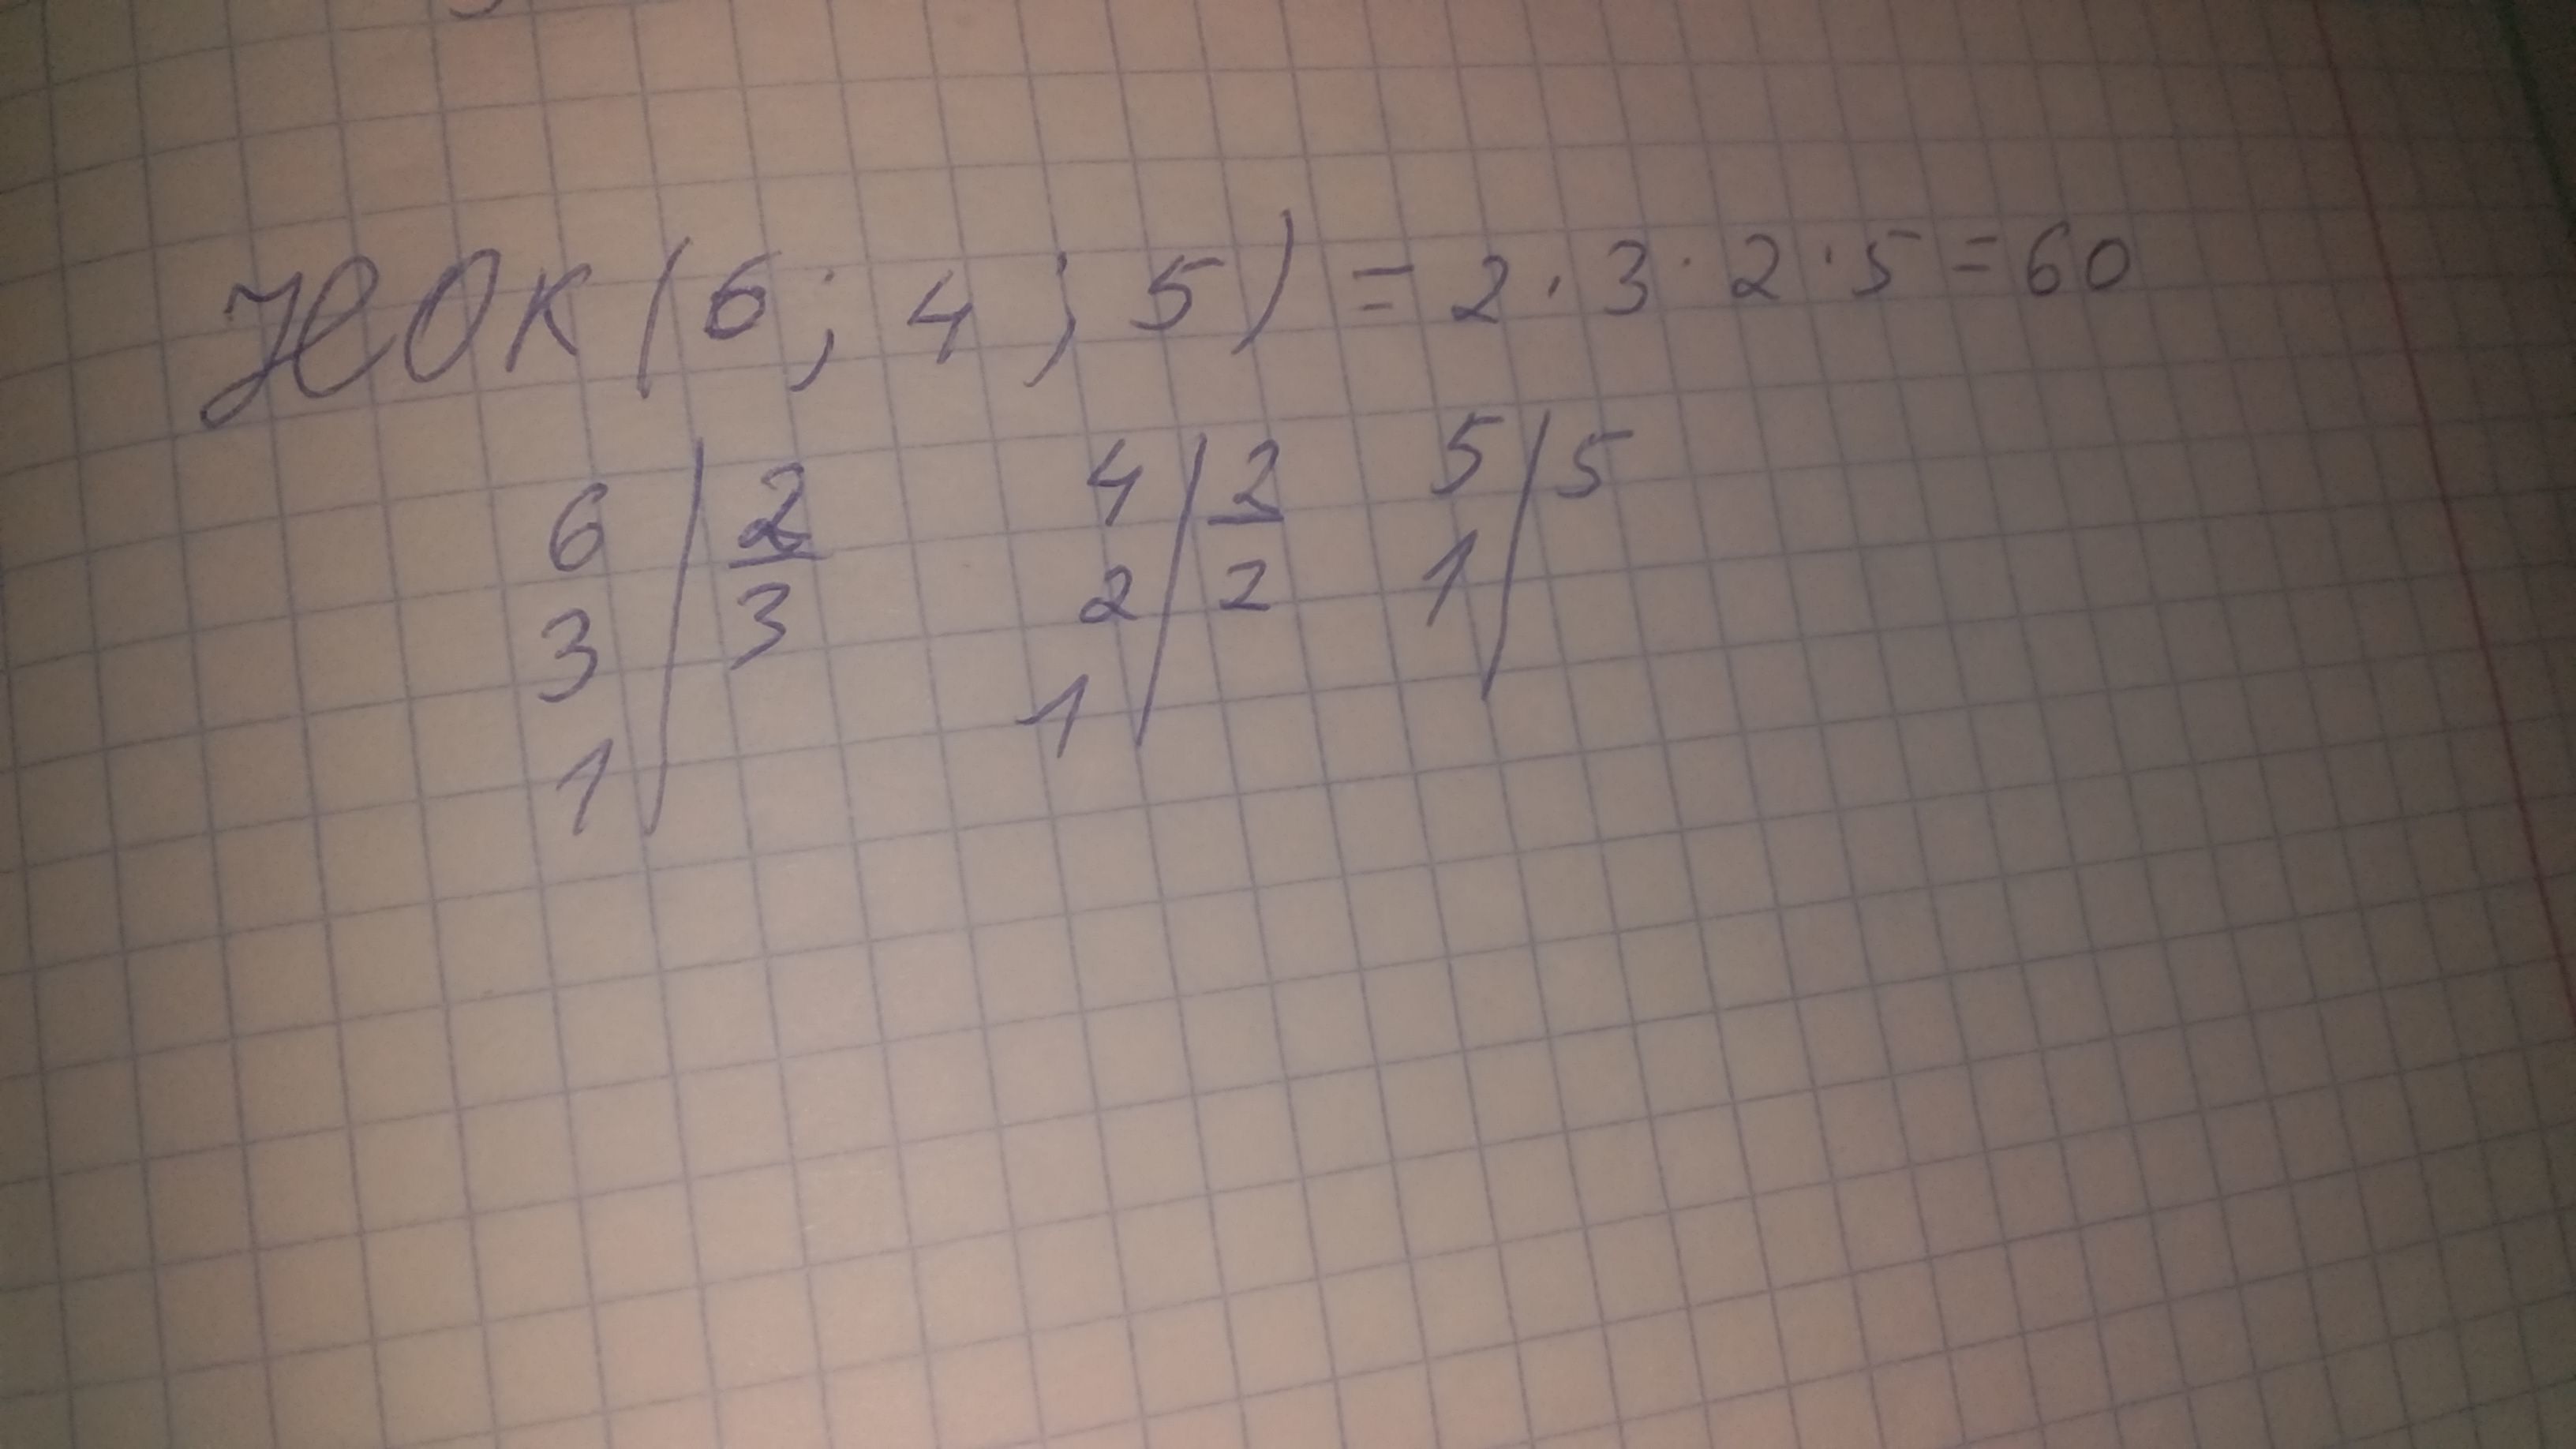 НОК (6; 4; 5) = 2 · 3 · 2 · 5 = 60
6 | 2 4 | 2 5 | 5
3 | 3 2 | 2 1 |
1 | 1 |